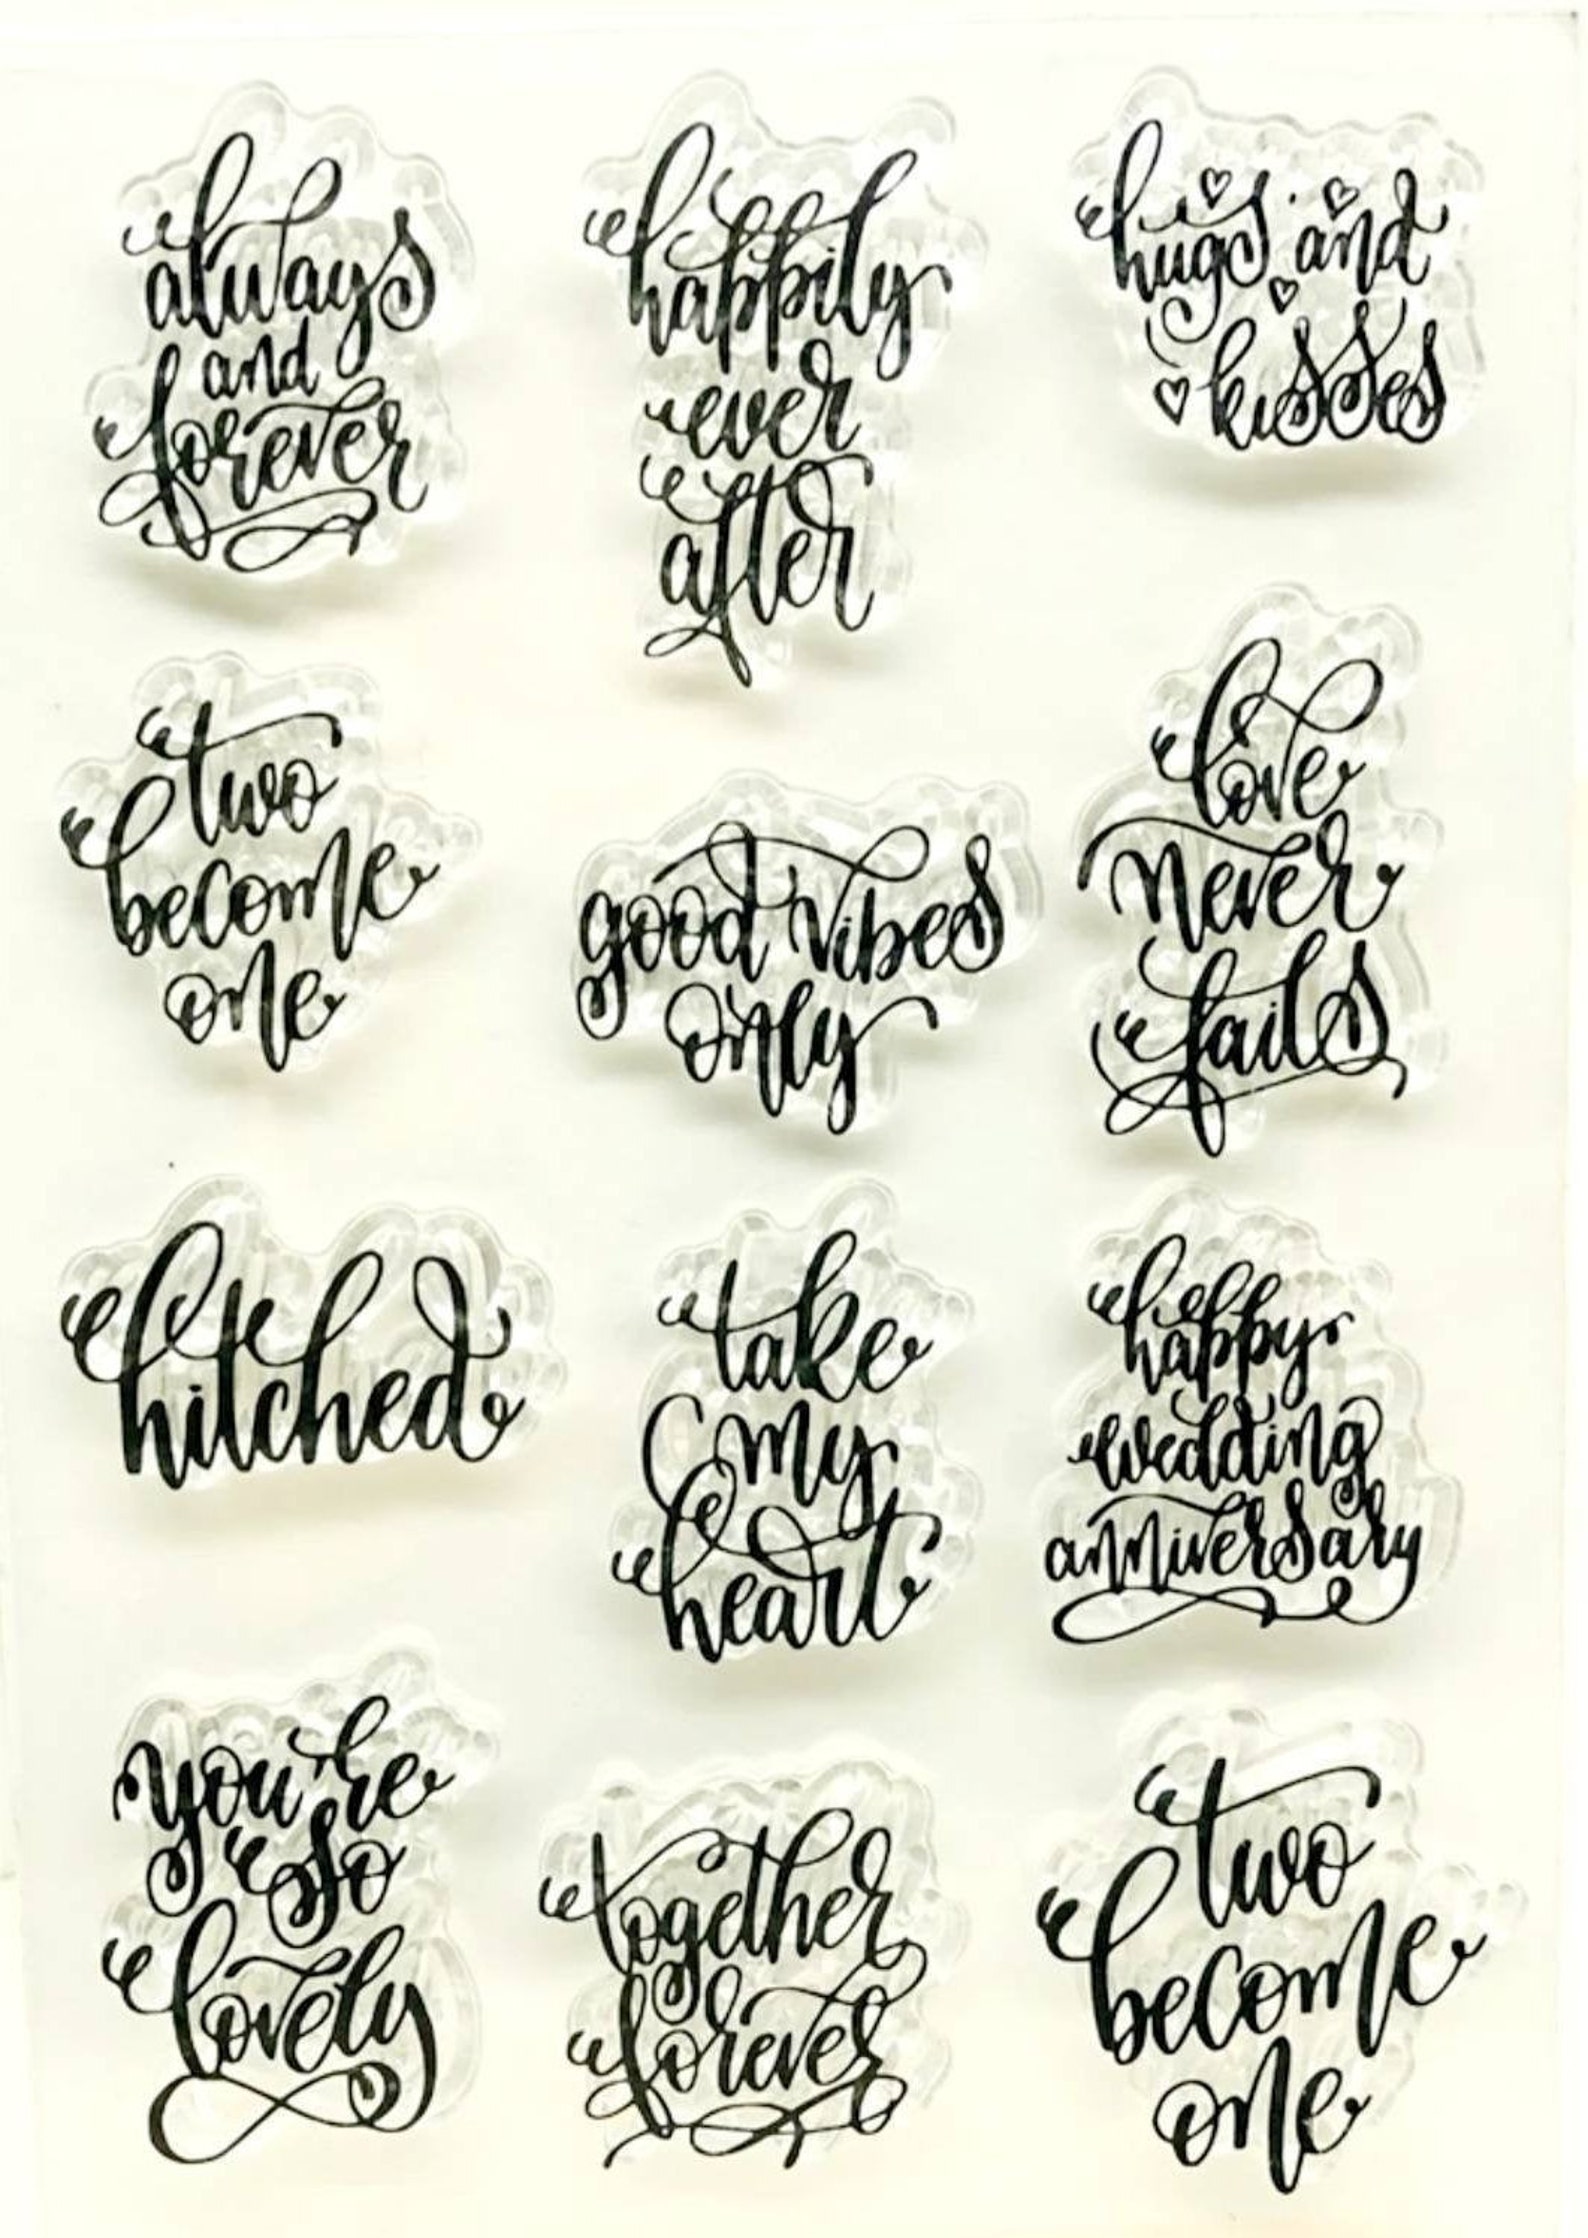 always
and
forever
happily
ever
after
hugs and
kisses
two
become
one
good vibes
only
love
never
fails
hitched
take
my
heart
happy
wedding
anniversary
you're
so
lovely
together
forever
two
become
one